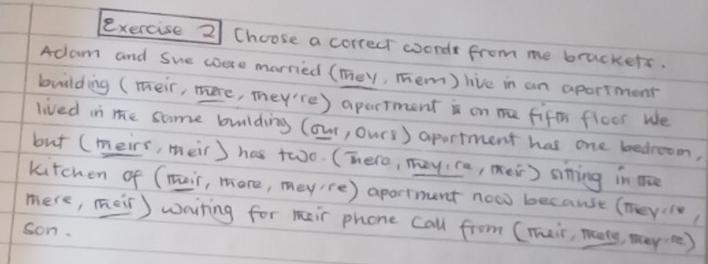 Exercise 2 Choose a correct words from the brackets.
Adam and Sue were married (they, them) live in an apartment
building (their, there, they're) apartment is on the fifth floor We
lived in the same building (our, ours) apartment has one bedroom,
but (theirs, their) has two. (There, they're, their) sitting in the
kitchen of (their, there, they're) apartment now because (they're,
there, their) waiting for their phone call from (their, there, they're)
son.